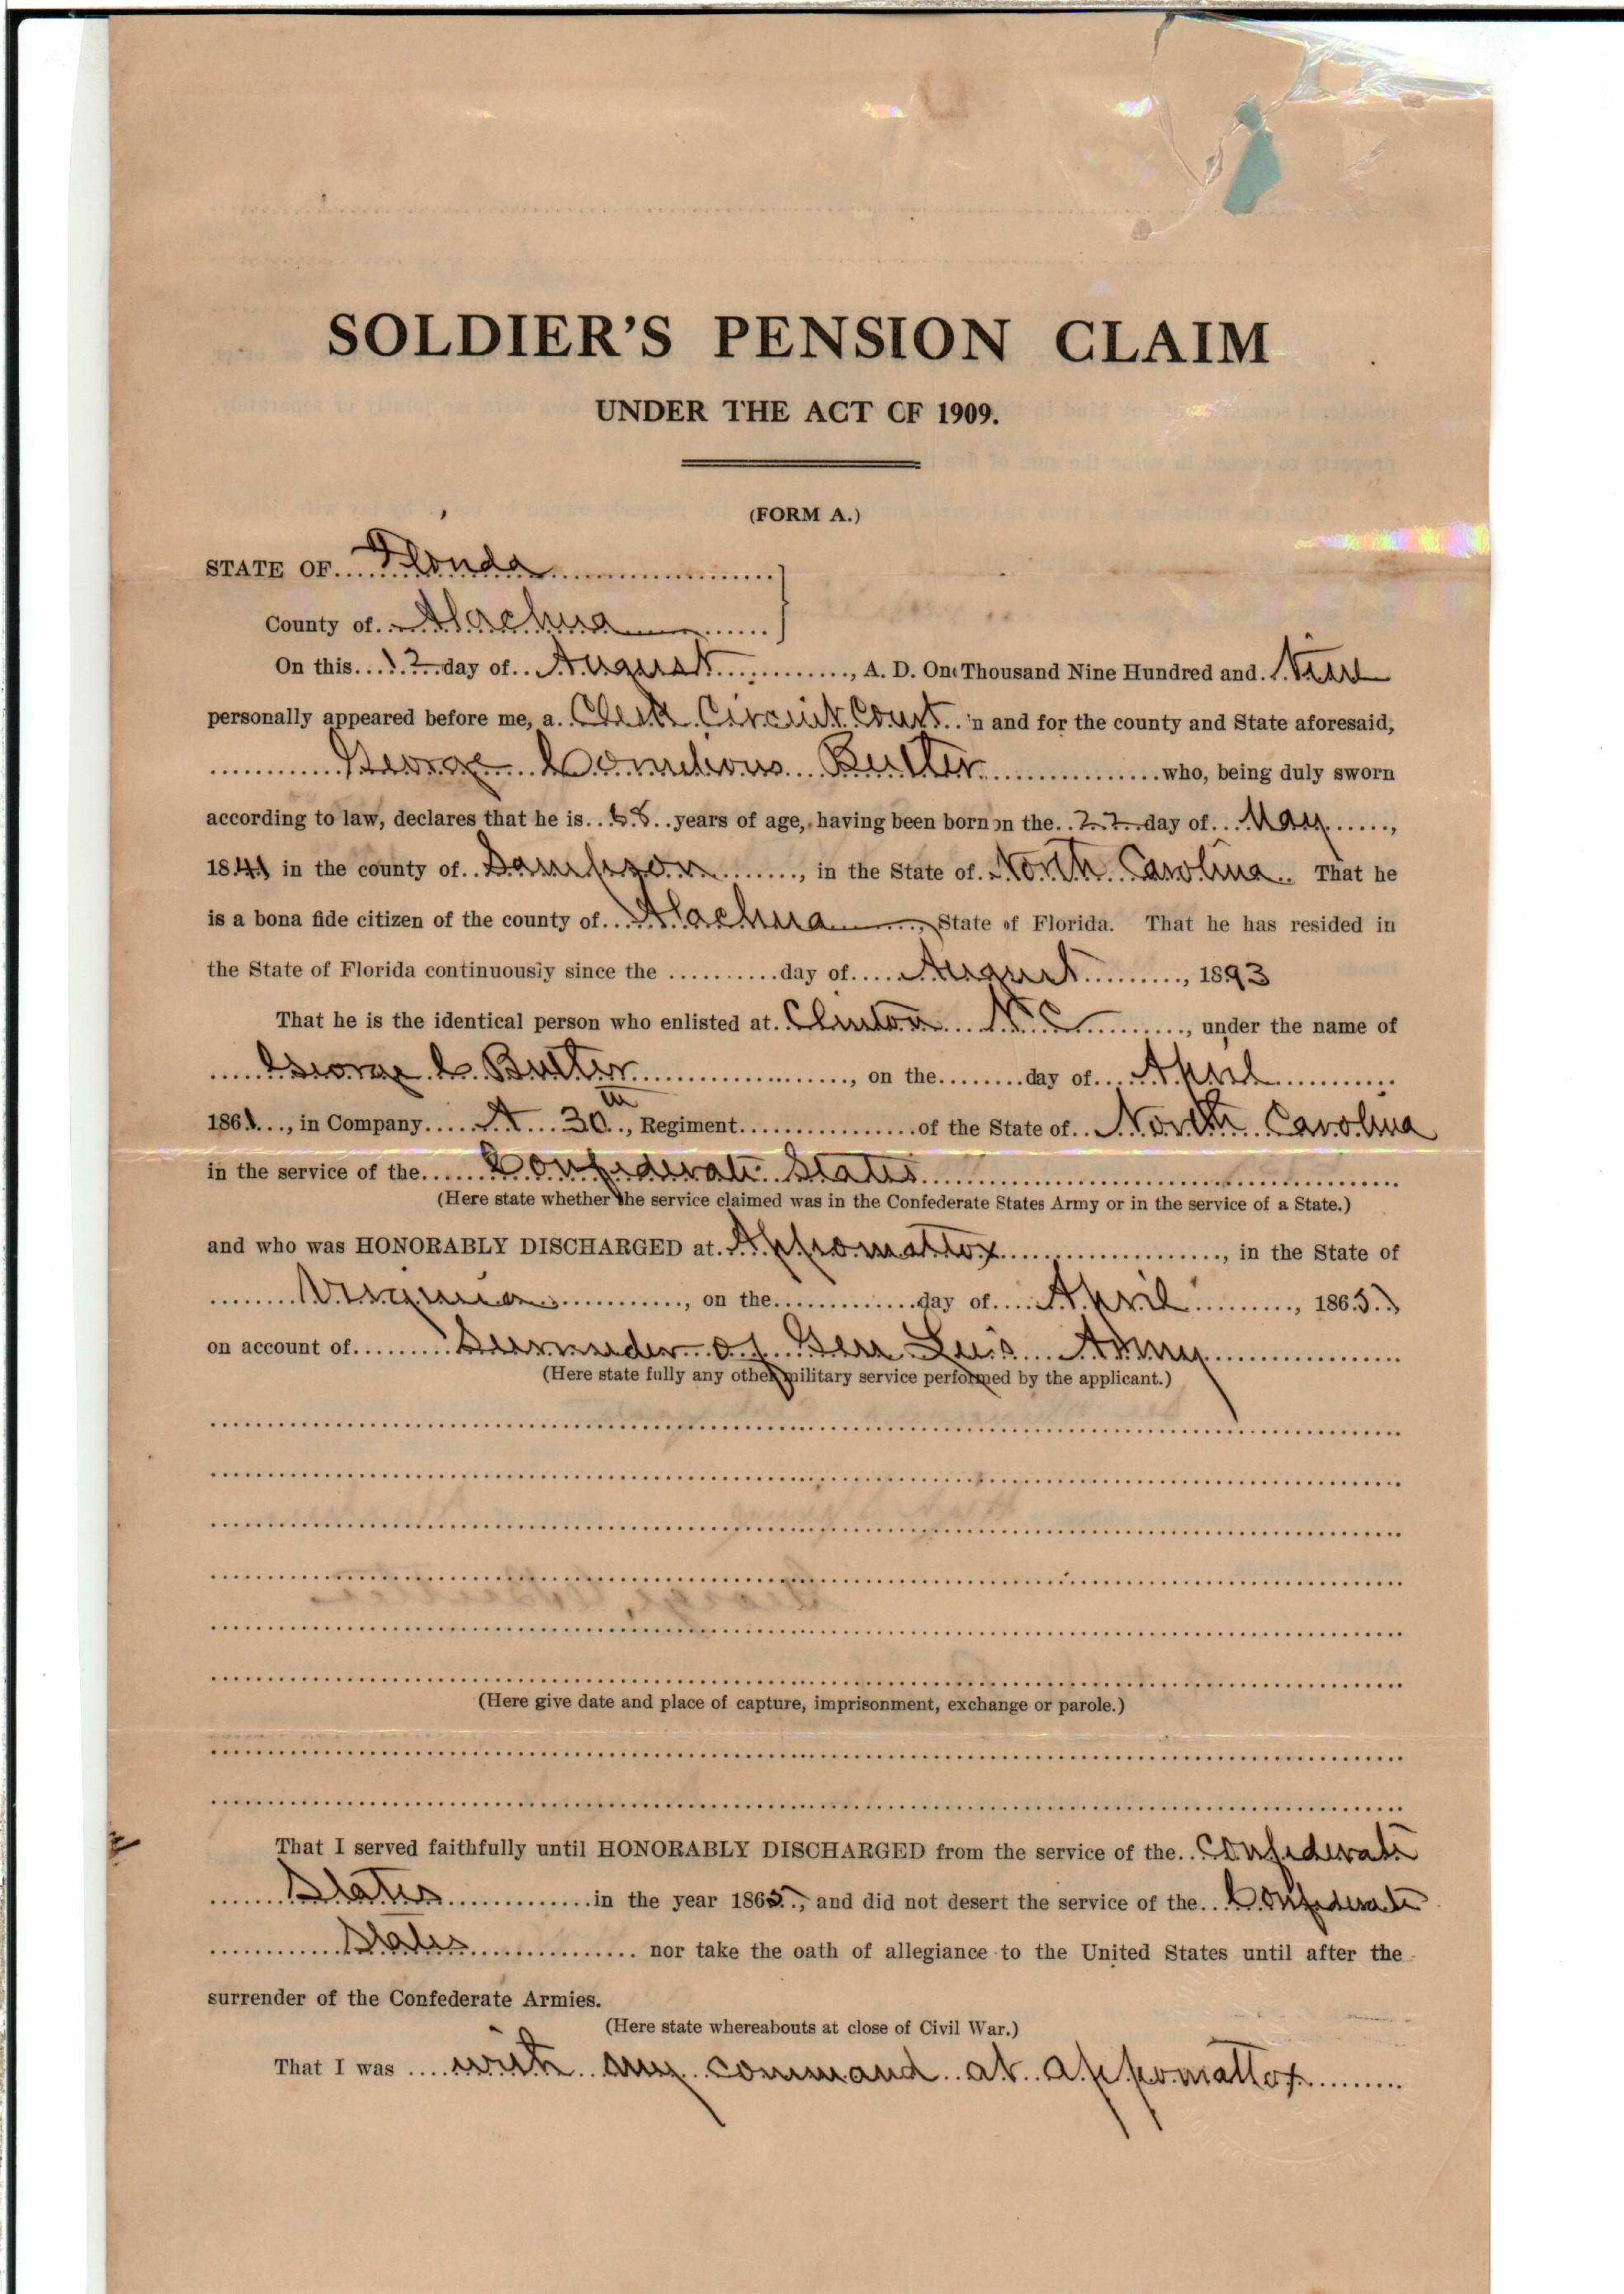 SOLDIER'S PENSION CLAIM
UNDER THE ACT OF 1909.
(FORM A.)
STATE OF Florida
County of Alachua
On this 12 day of August, A. D. One Thousand Nine Hundred and Nine
personally appeared before me, a Clerk Circuit Court in and for the county and State aforesaid,
George Cornelious Butler who, being duly sworn
according to law, declares that he is 68 years of age, having been born on the 22 day of May,
1841 in the county of Sampson, in the State of North Carolina. That he
is a bona fide citizen of the county of Alachua, State of Florida. That he has resided in
the State of Florida continuously since the day of August, 1893
That he is the identical person who enlisted at Clinton N.C., under the name of
George C. Butler, on the day of April
1861, in Company A 30th, Regiment of the State of North Carolina
in the service of the Confederate States
(Here state whether the service claimed was in the Confederate States Army or in the service of a State.)
and who was HONORABLY DISCHARGED at Appomattox, in the State of
Virginia, on the day of April, 1865,
on account of Surrender of Gen Lee's Army
(Here state fully any other military service performed by the applicant.)
(Here give date and place of capture, imprisonment, exchange or parole.)
That I served faithfully until HONORABLY DISCHARGED from the service of the Confederate
States in the year 1865, and did not desert the service of the Confederate
States nor take the oath of allegiance to the United States until after the
surrender of the Confederate Armies.
(Here state whereabouts at close of Civil War.)
That I was with my command at appomattox